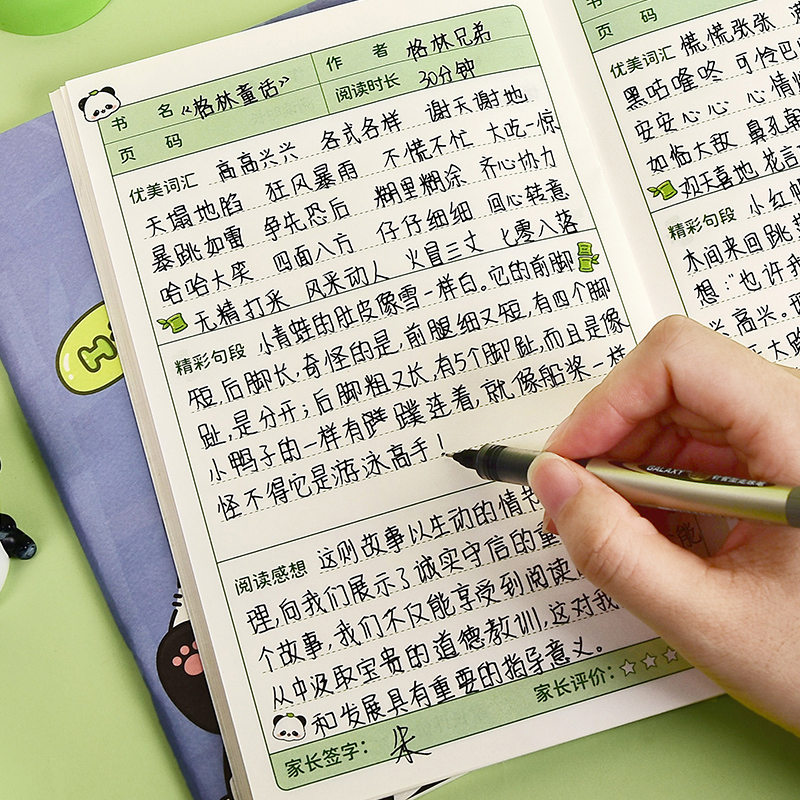 书 名 《格林童话》 作 者 格林兄弟
页 码 阅读时长 30分钟
优美词汇 高高兴兴 各式各样 谢天谢地
天塌地陷 狂风暴雨 不慌不忙 大吃一惊
暴跳如雷 争先恐后 糊里糊涂 齐心协力
哈哈大笑 四面八方 仔仔细细 回心转意
无精打采 风采动人 火冒三丈 七零八落
精彩句段 小青蛙的肚皮像雪一样白。它的前脚
短,后脚长,奇怪的是,前腿细又短,有四个脚
趾,是分开;后脚粗又长,有5个脚趾,而且是像
小鸭子的一样有蹼连着,就像船桨一样
怪不得它是游泳高手!
阅读感想 这则故事以生动的情节
理,向我们展示了诚实守信的重
个故事,我们不仅能享受到阅读
从中汲取宝贵的道德教训,这对我
和发展具有重要的指导意义。
家长签字: 朱 家长评价:
页 码
优美词汇 慌慌张张
黑咕隆咚 可怜巴
安安心心 心情
如临大敌 鼻孔朝
欢天喜地 花言
精彩句段 小红帽
木间来回跳
想:"也许我
高兴.
大路
GALAXY